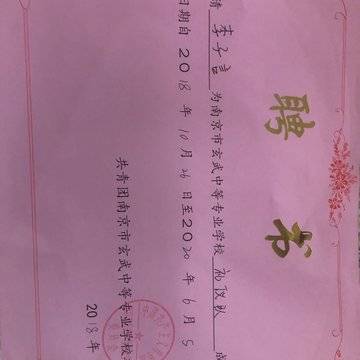 聘书
请 李子言 为南京市玄武中等专业学校 礼仪队 成
日期自 2018 年 10 月 26 日至2020 年 6 月 5
共青团南京市玄武中等专业学校
2018年